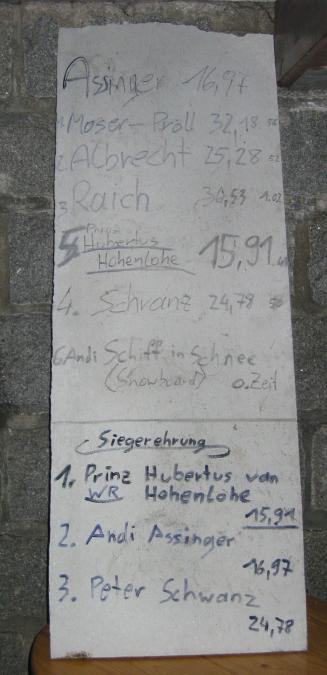 Assinger 16,97
1. Moser-Pröll 32,18 56
2. Albrecht 25,28 52
3 Raich 30,53 1.02
5 Prinz
Hubertus
Hohenlohe 15,91
4. Schranz 24,78 50
6. Andi Schiff in Schnee
(Snowboard) o.Zeit
Siegerehrung
1. Prinz Hubertus van
WR Hohenlohe
15,91
2. Andi Assinger
16,97
3. Peter Schwanz
24,78